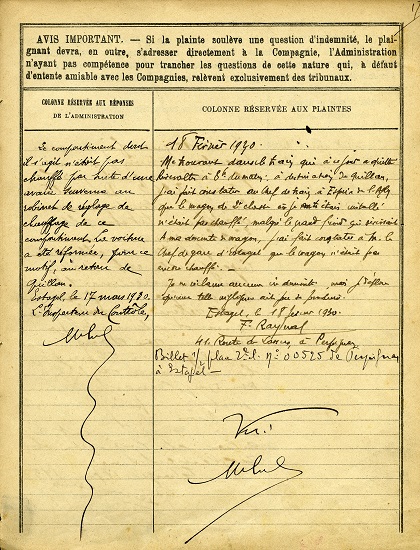 AVIS IMPORTANT. — Si la plainte soulève une question d'indemnité, le plai-
gnant devra, en outre, s'adresser directement à la Compagnie, l'Administration
n'ayant pas compétence pour trancher les questions de cette nature qui, à défaut
d'entente amiable avec les Compagnies, relèvent exclusivement des tribunaux.
COLONNE RÉSERVÉE AUX RÉPONSES
DE L'ADMINISTRATION
Le compartiment dont
il s'agit n'était pas
chauffé par suite d'une
avarie survenue au
robinet de réglage de
chauffage de ce
compartiment. La voiture
a été réformée, pour ce
motif, au retour de
Quillan.
Estagel, le 17 mars 1930.
L'Inspecteur du Contrôle,
COLONNE RÉSERVÉE AUX PLAINTES
18 Février 1930.
Me trouvant dans le train qui à ce jour a quitté
Rivesaltes à du matin, à destination de Quillan,
j'ai fait constater au chef de train à Espira de l'Agly
que le wagon de 2e classe où je m'étais installé
n'était pas chauffé malgré le grand froid qui sévissait
A ma descente de wagon, j'ai fait constater à M. le
chef de gare d'Estagel que le wagon n'était pas
encore chauffé. —
Je ne réclame aucune indemnité, mais je déplore
qu'une telle négligence ait pu se produire.
Estagel, le 18 février 1930.
F. Raynal
44 Route de à Perpignan
Billet plac 2e cl. No 00525 de Perpignan
à Estagel —
Vu :